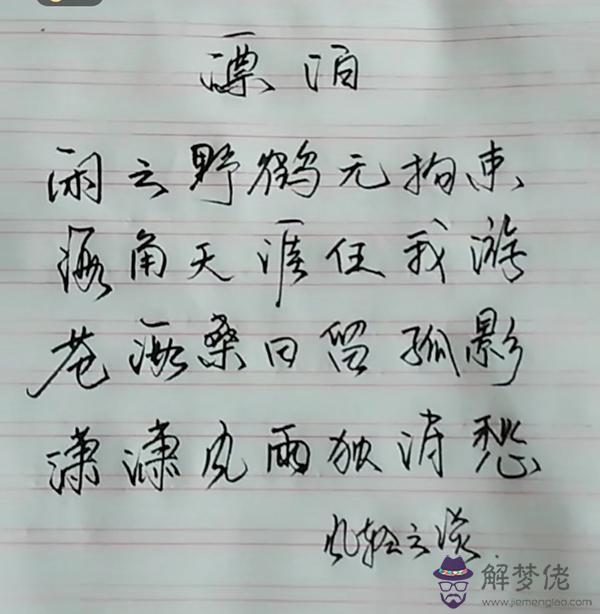 漂泊
闲云野鹤无拘束
海角天涯任我游
苍海桑田留孤影
潇潇风雨独清愁
风轻云淡
解梦佬
www.jiemenglao.com